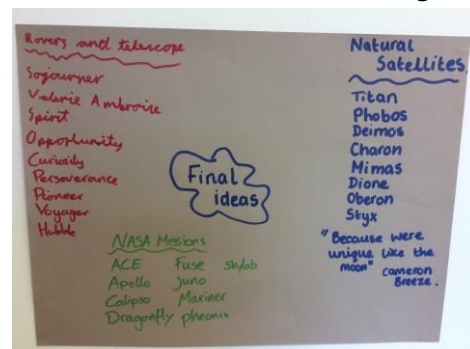 Rovers and telescope
Sojourner
Valerie Ambroise
Spirit
Opportunity
Curiosity
Perseverance
Pioneer
Voyager
Hubble
Final
ideas
NASA Missions
ACE Fuse skylab
Apollo Juno
Calipso Mariner
Dragonfly pheonix
Natural
Satellites.
Titan
Phobos
Deimos
Charon
Mimas
Dione
Oberon
Styx
"Because were
unique like the
moon" cameron
Breeze.